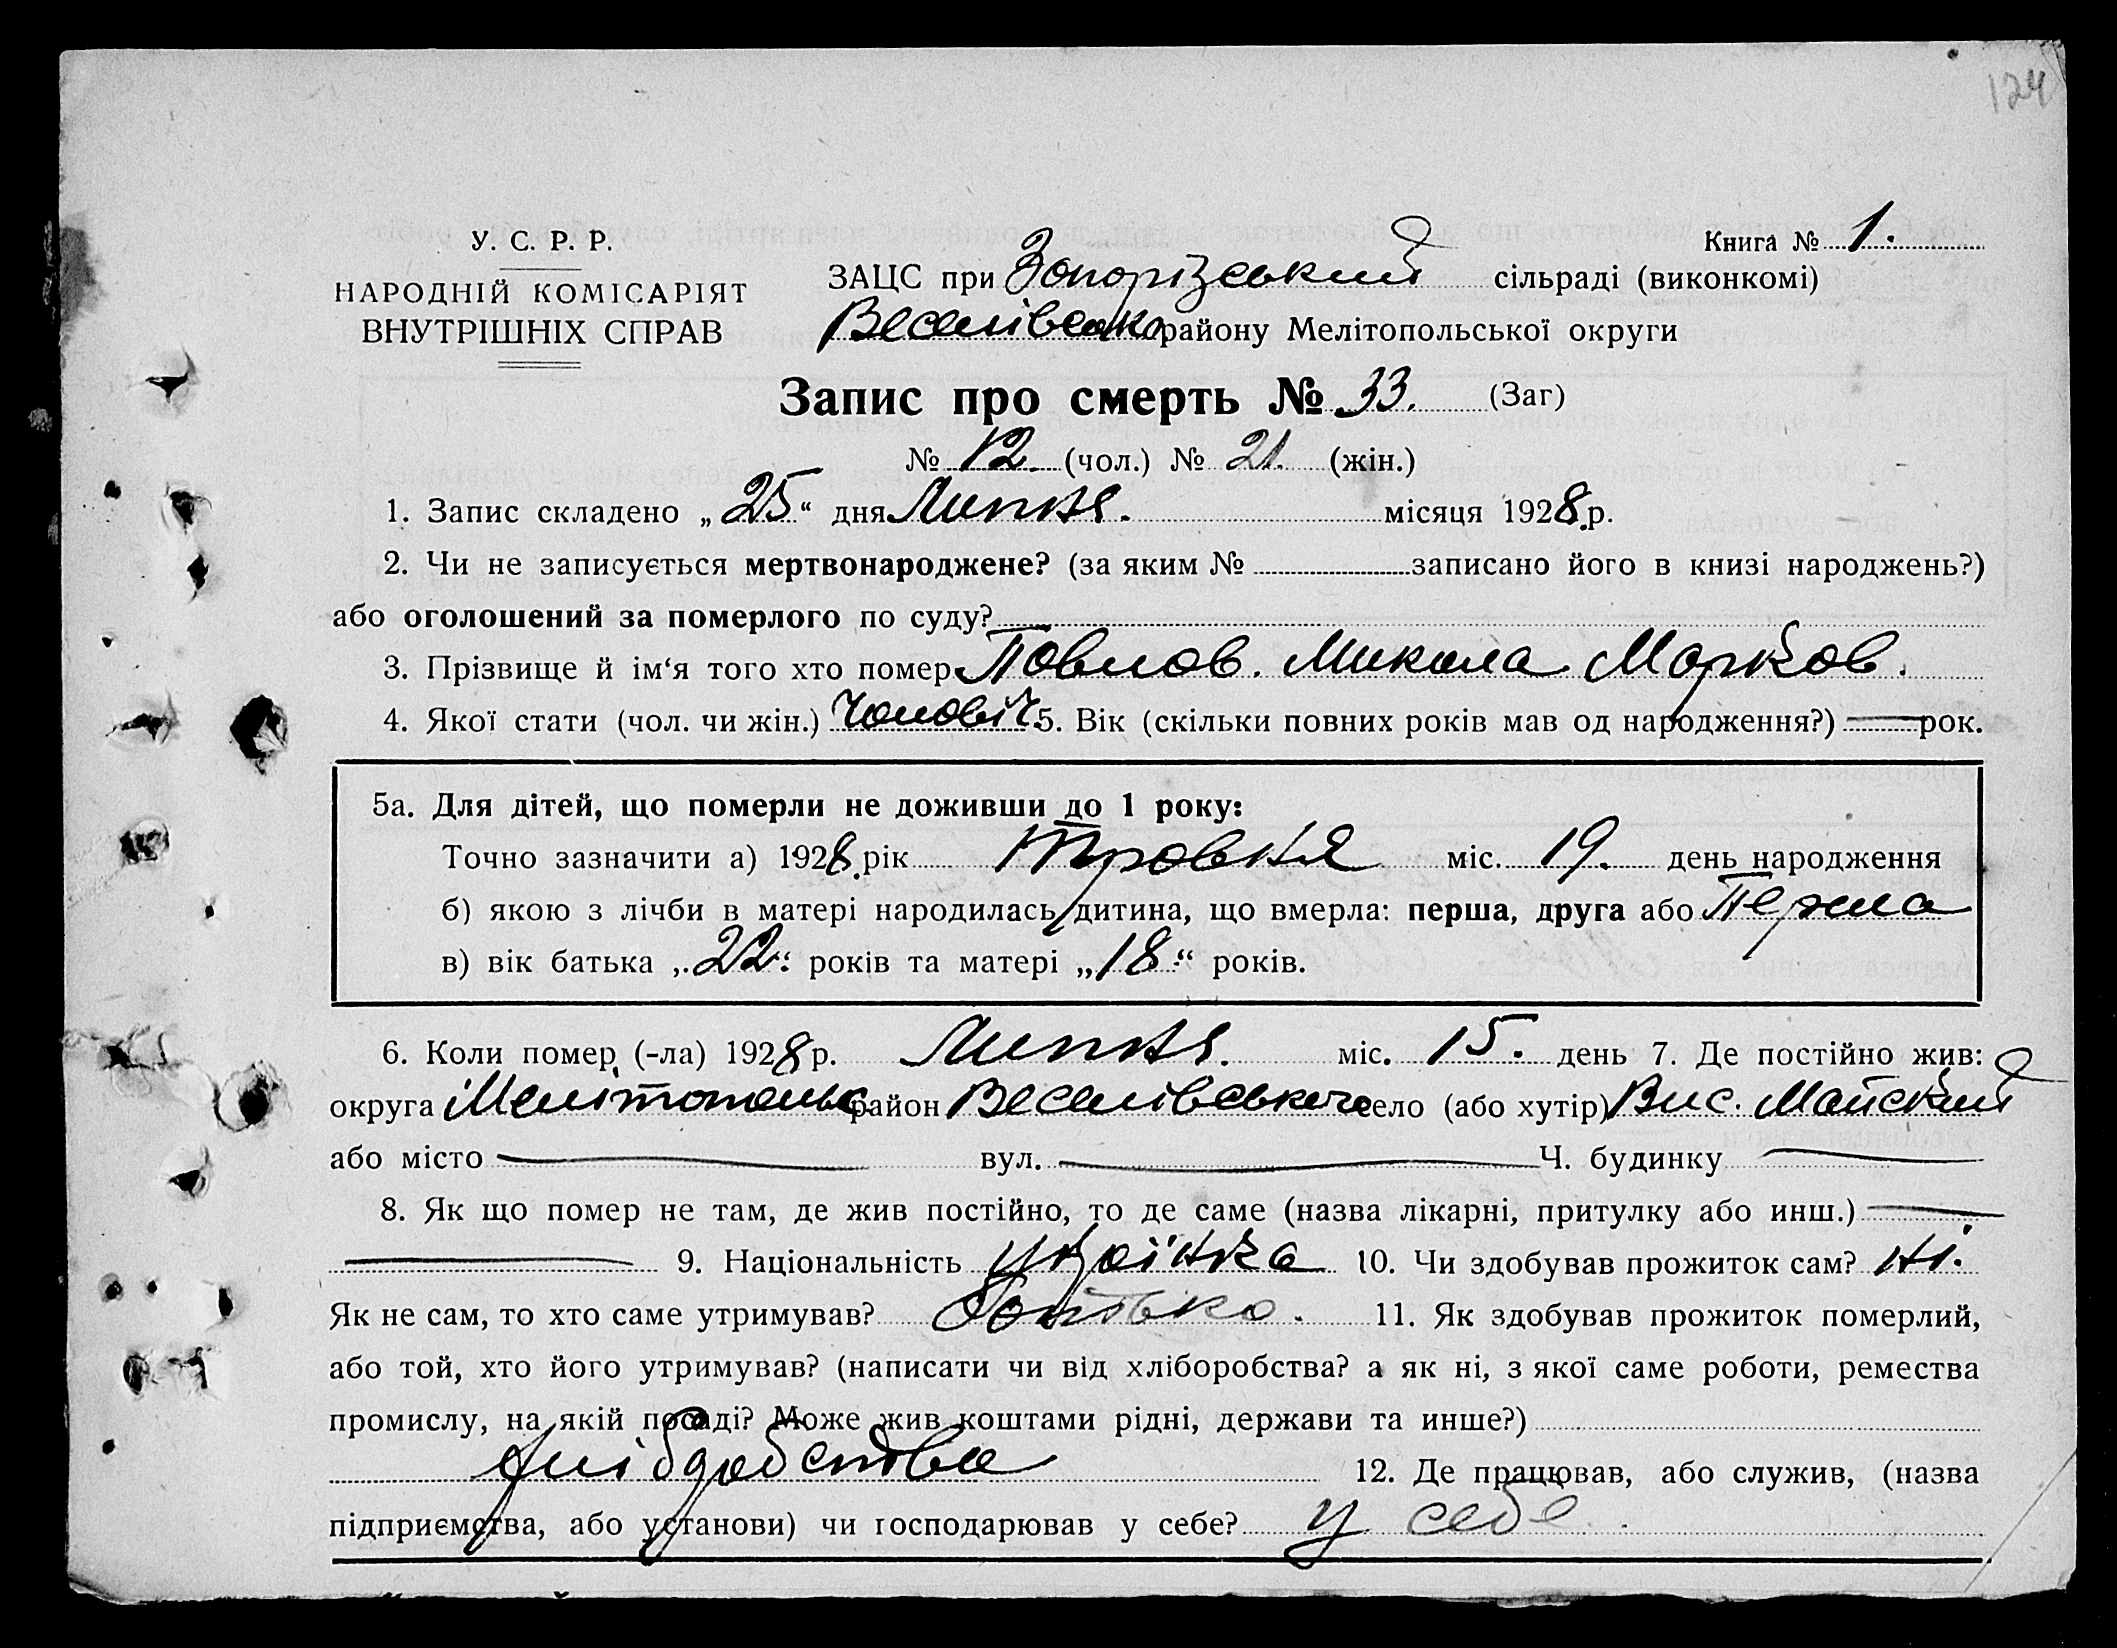 124
У. С. Р. Р.
Книга № 1.
НАРОДНІЙ КОМІСАРІЯТ
ЗАЦС при Запорізський сільраді (виконкомі)
ВНУТРІШНІХ СПРАВ
району Мелітопольської округи
Запис про смерть № 33. (Заг)
№ 12. (чол.) № 21. (жін.)
1. Запис складено „ 25 “ дня Липня. місяця 1928 р.
2. Чи не записується мертвонароджене? (за яким № записано його в книзі народжень?)
або оголошений за померлого по суду?
3. Прізвище й ім‘я того хто помер Павлов. Микола Марков.
4. Якої стати (чол. чи жін.) Чоловіч. 5. Вік (скільки повних років мав од народження?) — рок.
5а. Для дітей, що померли не доживши до 1 року:
Точно зазначити а) 1928 рік Травня міс. 19. день народження
б) якою з лічби в матері народилась дитина, що вмерла: перша, друга або Перша
в) вік батька „ 22 “ років та матері „ 18 “ років.
6. Коли помер (-ла) 1928 р. Липня. міс. 15. день 7. Де постійно жив:
округа Мелітопольс. район Веселівського село (або хутір) Вис. Майський
або місто — вул. — Ч. будинку —
8. Як що помер не там, де жив постійно, то де саме (назва лікарні, притулку або инш.) —
— 9. Національність 10. Чи здобував прожиток сам? Ні.
Як не сам, то хто саме утримував? Батько. 11. Як здобував прожиток померлий,
або той, хто його утримував? (написати чи від хліборобства? а як ні, з якої саме роботи, ремества
промислу, на якій посаді? Може жив коштами рідні, держави та инше?)
12. Де працював, або служив, (назва
підприємства, або установи) чи господарював у себе? у себе